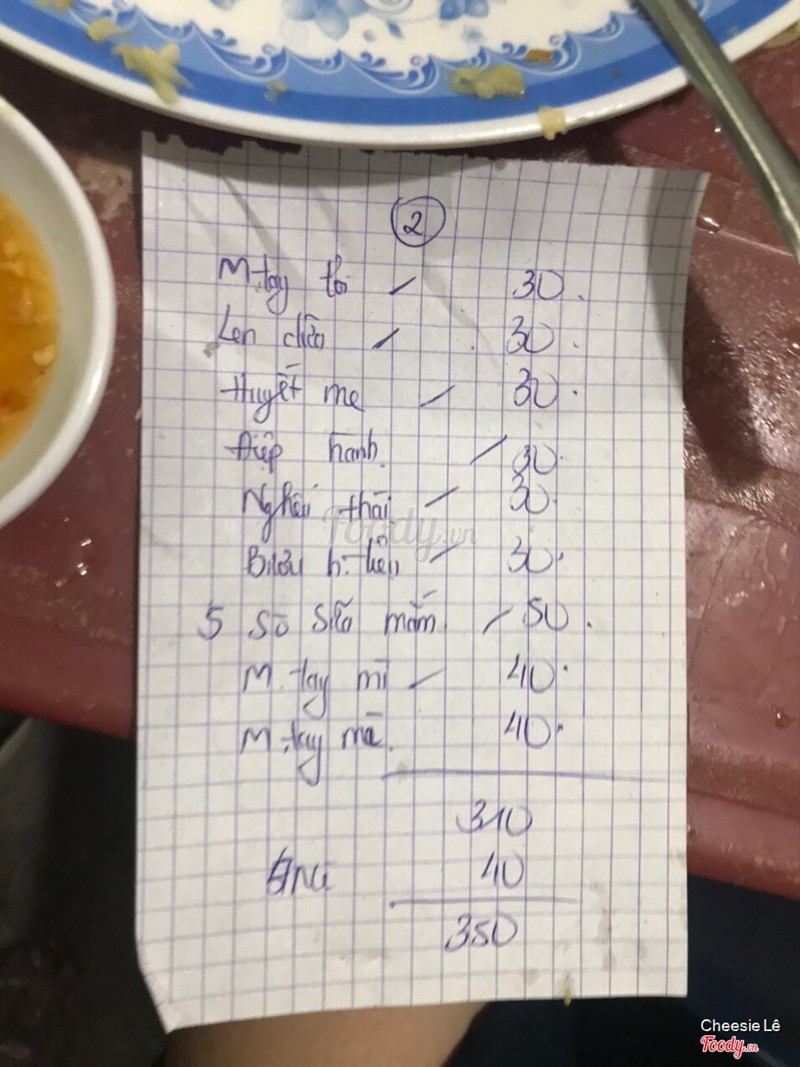 2
M.tay tỏi / 30.
Len dừa / 30.
Huyết me / 30.
Điệp hành / 30.
Nghêu thái / 30.
30.
5 Sò sữa mắm / 50.
M. tay mì / 40.
M. tay me. 40.
310
40
350
Foody.vn
Cheesie Lê
Foody.vn